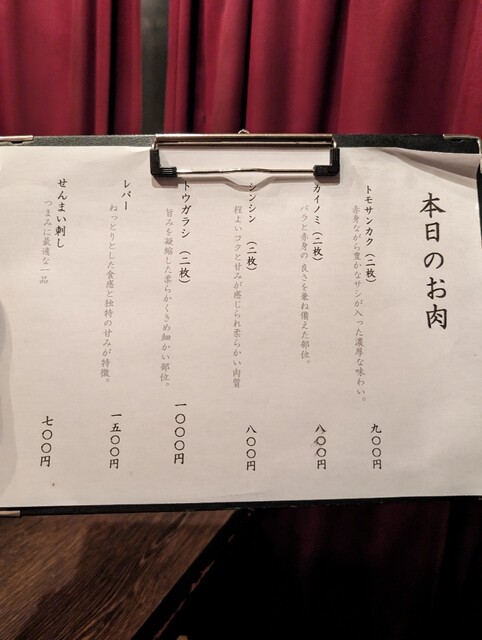 本日のお肉
トモサンカク（二枚）
赤身ながら豊かなサシが入った濃厚な味わい。
九〇〇円
カイノミ（二枚）
バラと赤身の良さを兼ね備えた部位。
八〇〇円
シンシン（二枚）
程よいコクと甘みが感じられ柔らかい肉質
八〇〇円
トウガラシ（二枚）
旨みを凝縮した柔らかくきめ細かい部位。
一〇〇〇円
レバー
ねっとりとした食感と独特の甘みが特徴。
一五〇〇円
せんまい刺し
つまみに最適な一品
七〇〇円